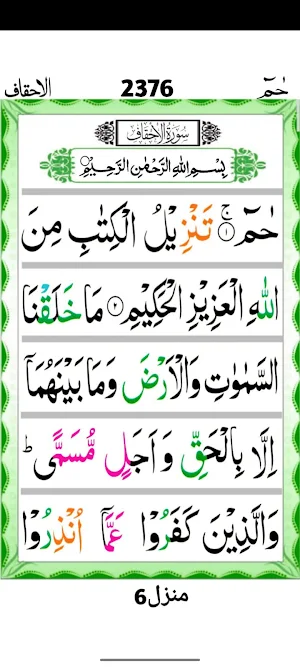 الاحقاف 2376 حٰمٓ
سُوْرَةُ الْاَحْقَافِ
بِسْمِ اللّٰهِ الرَّحْمٰنِ الرَّحِيْمِ
حٰمٓ ۚ‏﴿۱﴾ تَنْزِيْلُ الْكِتٰبِ مِنَ
اللّٰهِ الْعَزِيْزِ الْحَكِيْمِ ﴿۲﴾ مَا خَلَقْنَا
السَّمٰوٰتِ وَالْاَرْضَ وَمَا بَيْنَهُمَاۤ
اِلَّا بِالْحَقِّ وَاَجَلٍ مُّسَمًّى ؕ
وَالَّذِيْنَ كَفَرُوْا عَمَّاۤ اُنْذِرُوْا
منزل 6